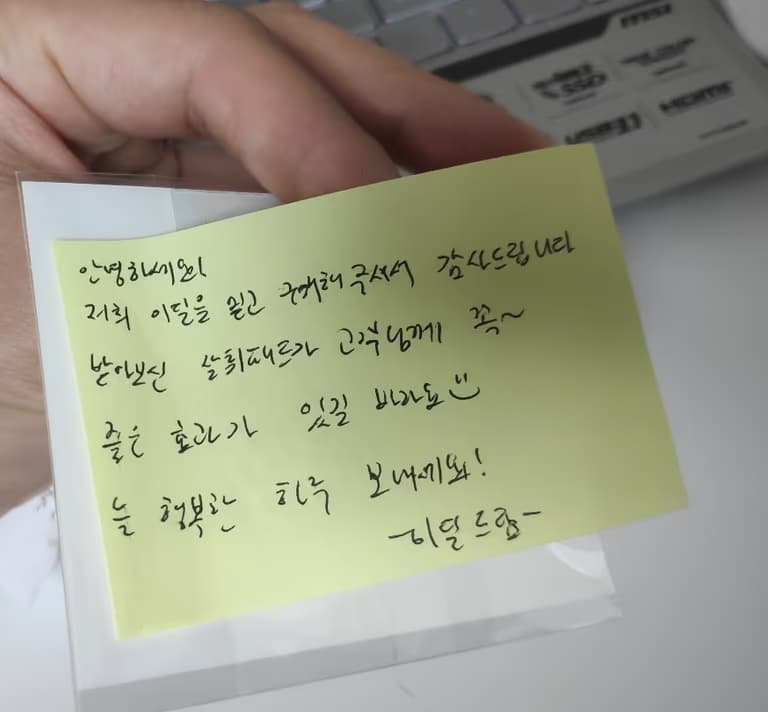 msi
SSD
USB 3.1
HDMI
안녕하세요!
저희 이달을 믿고 구매해주셔서 감사드립니다
받아보신 살휘패드가 고객님께 꼭~
좋은 효과가 있길 바라요
늘 행복한 하루 보내세요!
-이달드림-